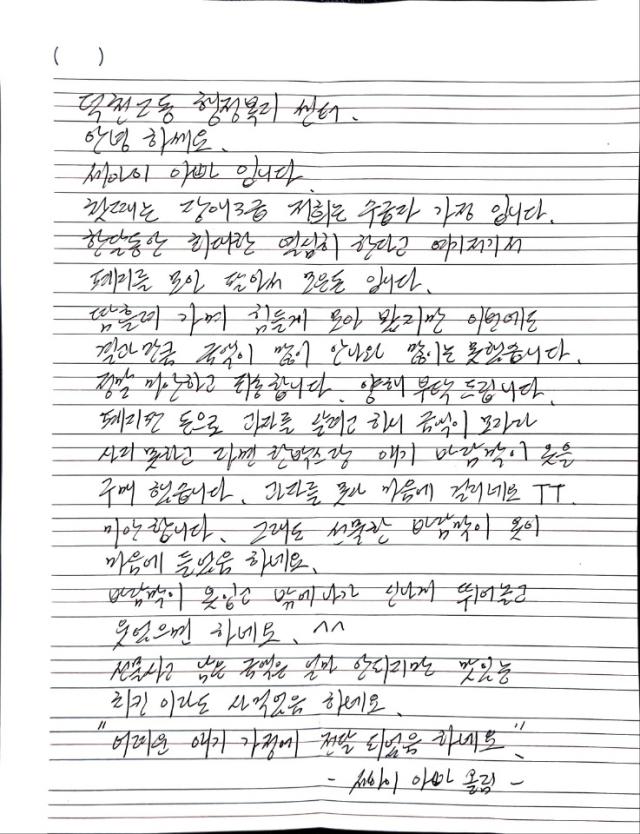 ( )
덕천2동 행정복리 센터.
안녕 하세요.
세아이 아빠 입니다.
첫째는 장애3급 저희는 수급자 가정 입니다.
한달동안 최대한 열심히 한다고 여기저기서
폐지를 모아 팔아서 모은돈 입니다.
땀흘려 가며 힘들게 모아 봤지만 이번에도
결과만큼 금액이 많이 안나와 많이는 못했습니다.
정말 미안하고 죄송합니다. 양해 부탁드립니다.
폐지판 돈으로 과자를 살려고 하니 금액이 모자라
사지 못하고 라면 한박스랑 애기 바람막이 옷을
구매 했습니다. 과자를 못사 마음에 걸리네요 TT.
미안합니다. 그래도 선물한 바람막이 옷이
마음에 들었음 하네요.
바람막이 옷입고 밖에나가 신나게 뛰어놀고
웃었으면 하네요. ^^
선물사고 남은 금액은 얼마 안되지만 맛있는
치킨 이라도 사먹었음 하네요.
"어려운 애기 가정에 전달 되었음 하네요"
- 세아이 아빠 올림 -